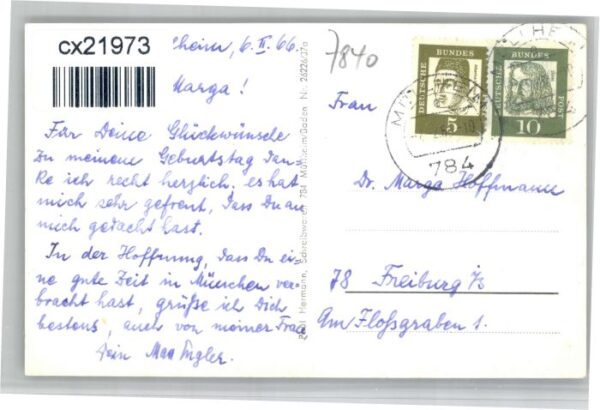 cx21973
heim, 6.II.66.
Marga!
Für Deine Glückwünsche
zu meinem Geburtstag dan-
ke ich recht herzlich. es hat
mich sehr gefreut, dass Du an
mich gedacht hast.
In der Hoffnung, dass Du ei-
ne gute Zeit in München ver-
bracht hast, grüße ich Dich
bestens, auch von meiner Frau
Dein Max Engler.
Hermann, Schreibwaren, 784 Müllheim/Baden Nr. 26226/37a
7840
DEUTSCHE BUNDES
5
DEUTSCHE BUNDES POST
10
784
Frau
Dr. Marga Hoffmann
78 Freiburg i/B
Am Floßgraben 1.